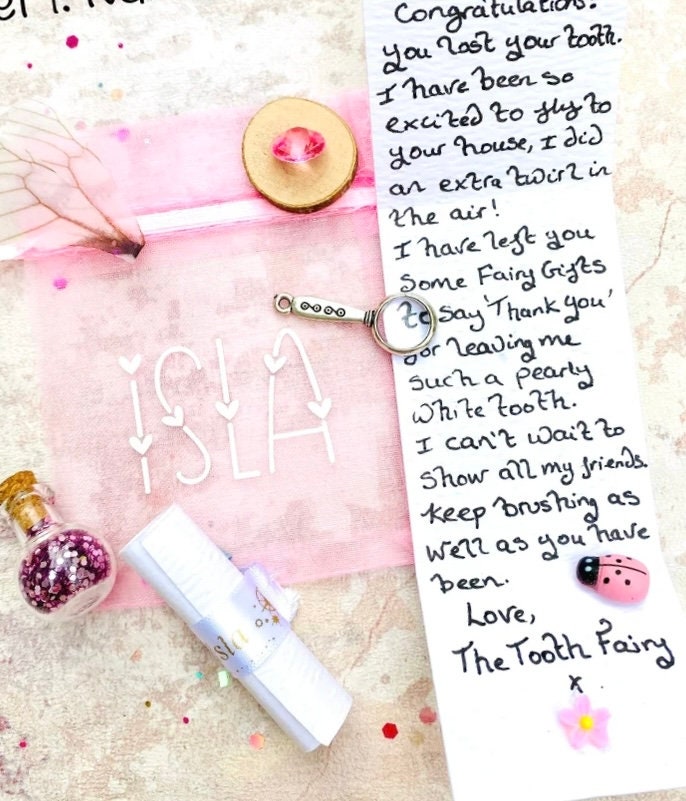 Congratulations!
you lost your tooth.
I have been so
excited to fly to
your house, I did
an extra twirl in
the air!
I have left you
Some Fairy Gifts
to say 'Thank you'
for leaving me
such a pearly
white tooth.
I can't wait to
show all my friends.
Keep brushing as
well as you have
been.
Love,
The Tooth Fairy
x
ISLA
sla